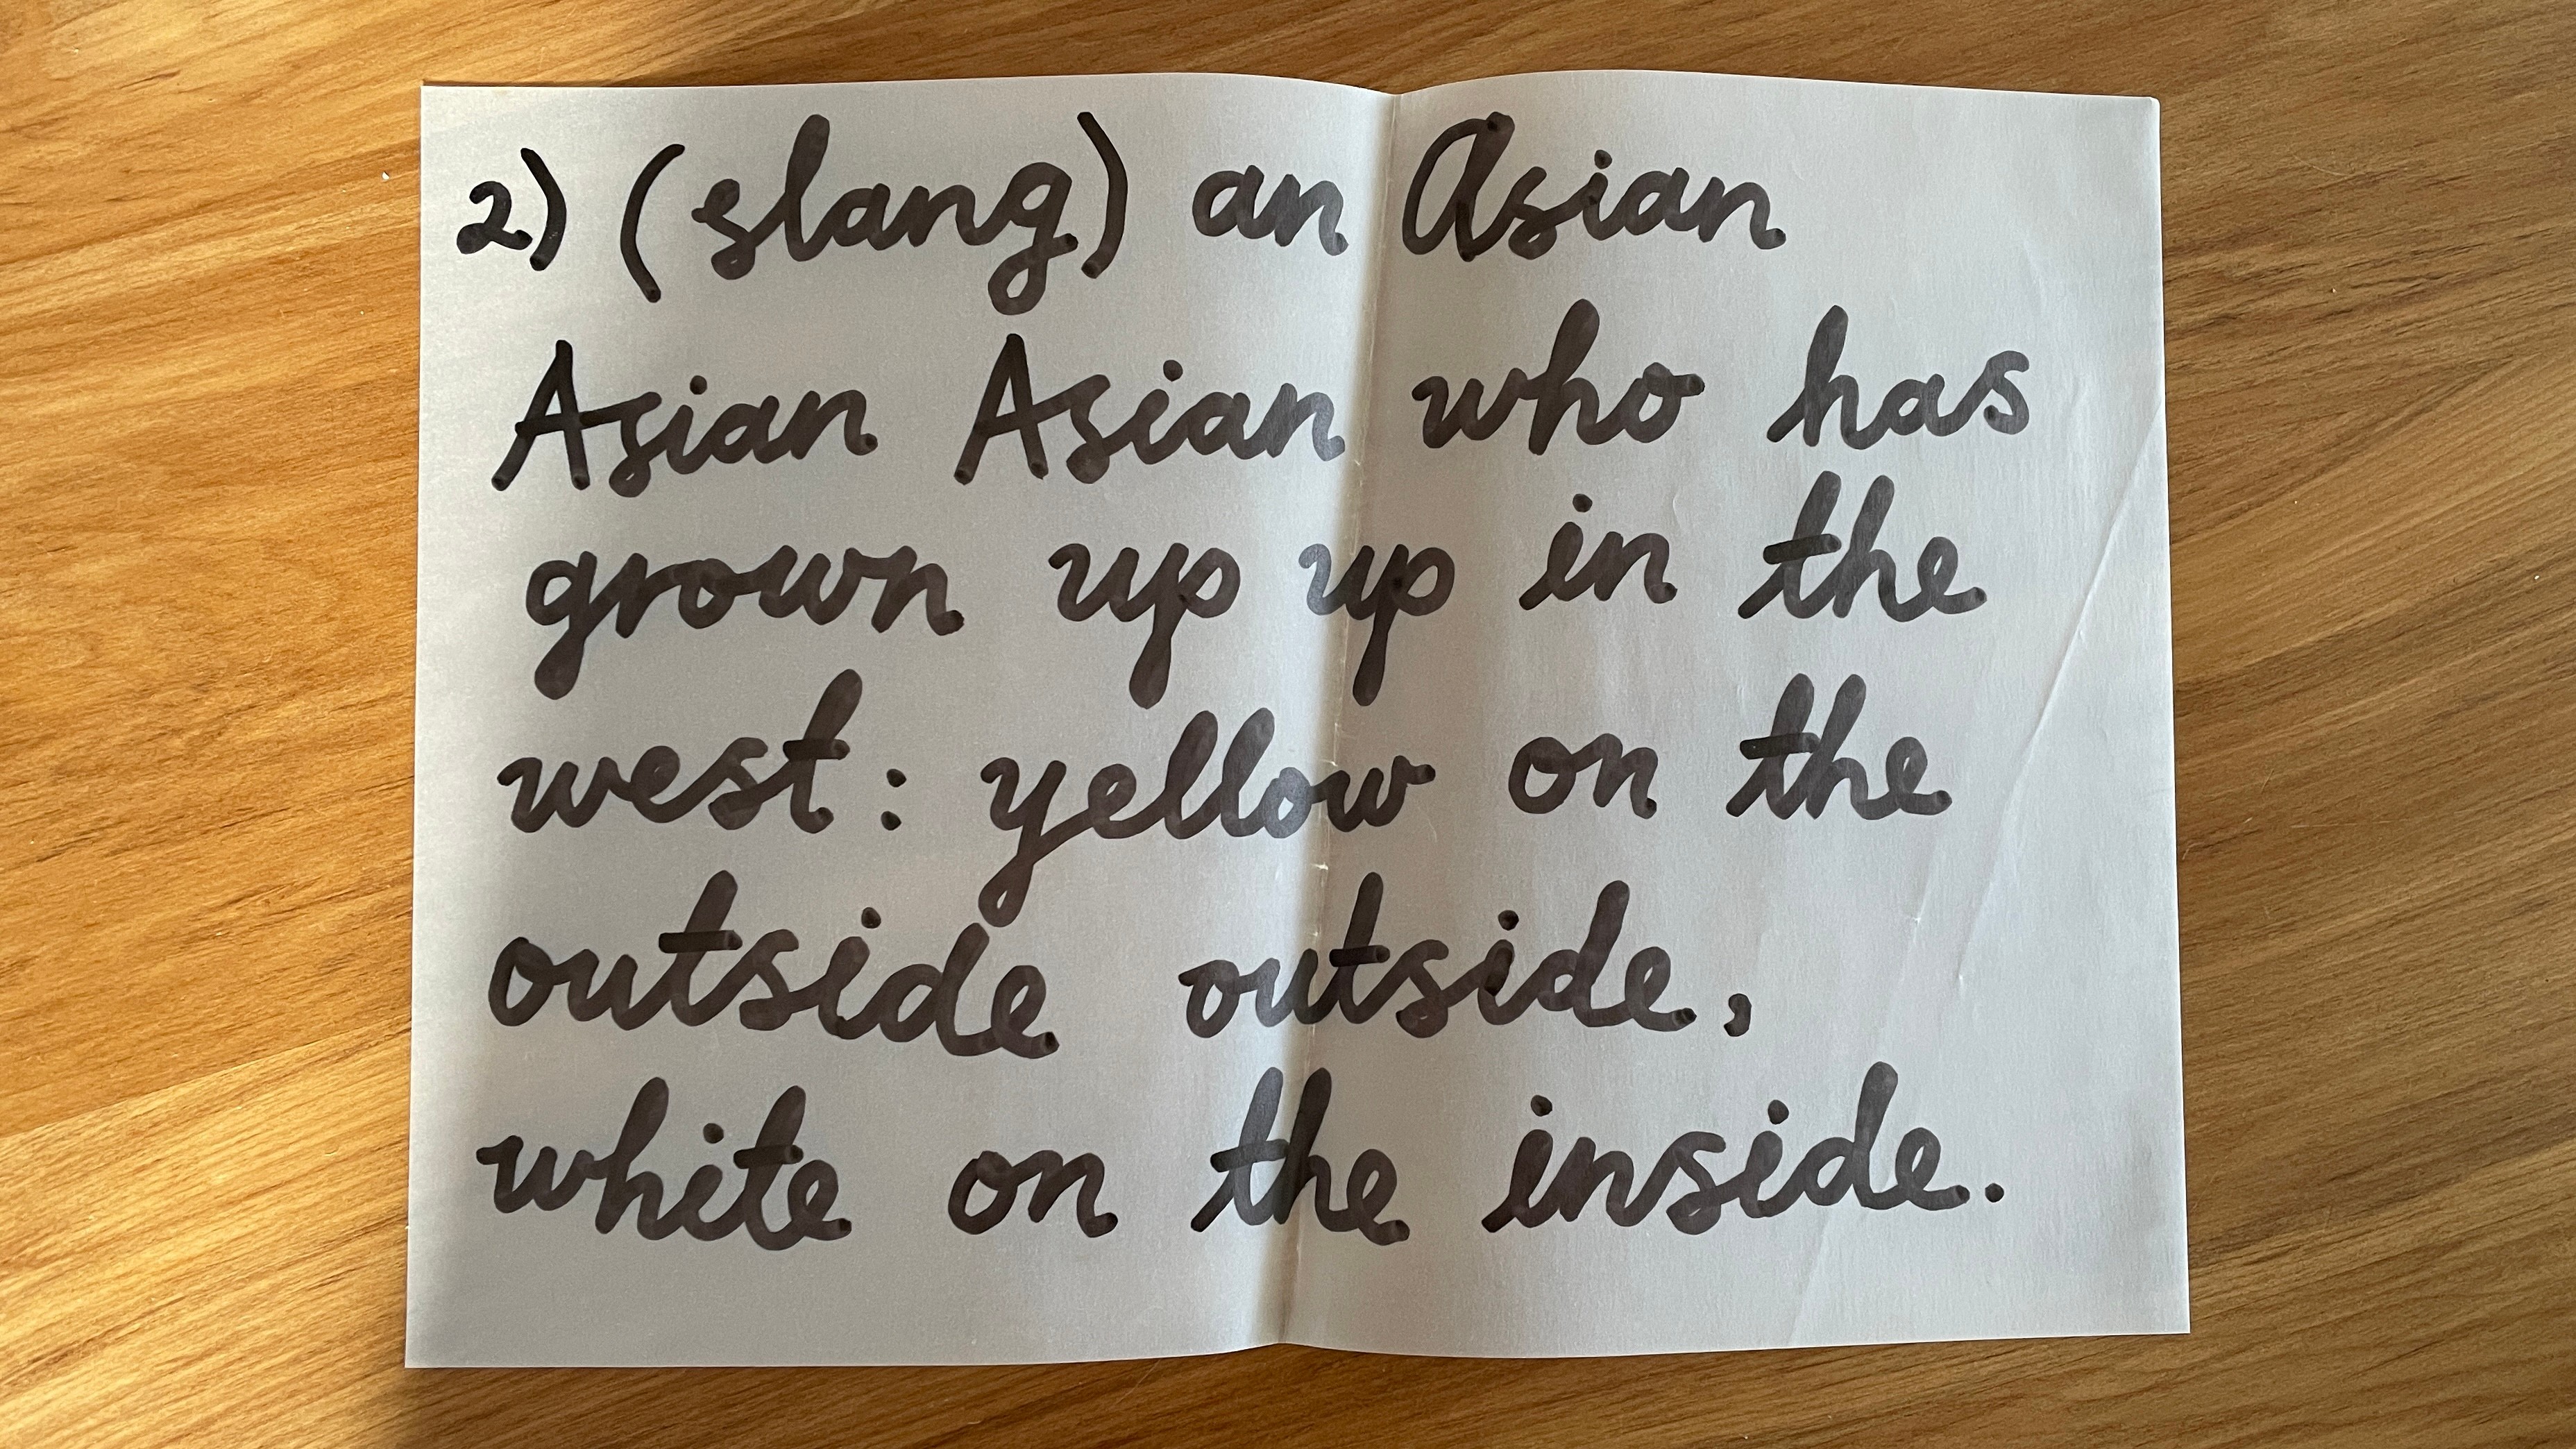 2) (slang) an Asian
Asian Asian who has
grown up up in the
west: yellow on the
outside outside,
white on the inside.